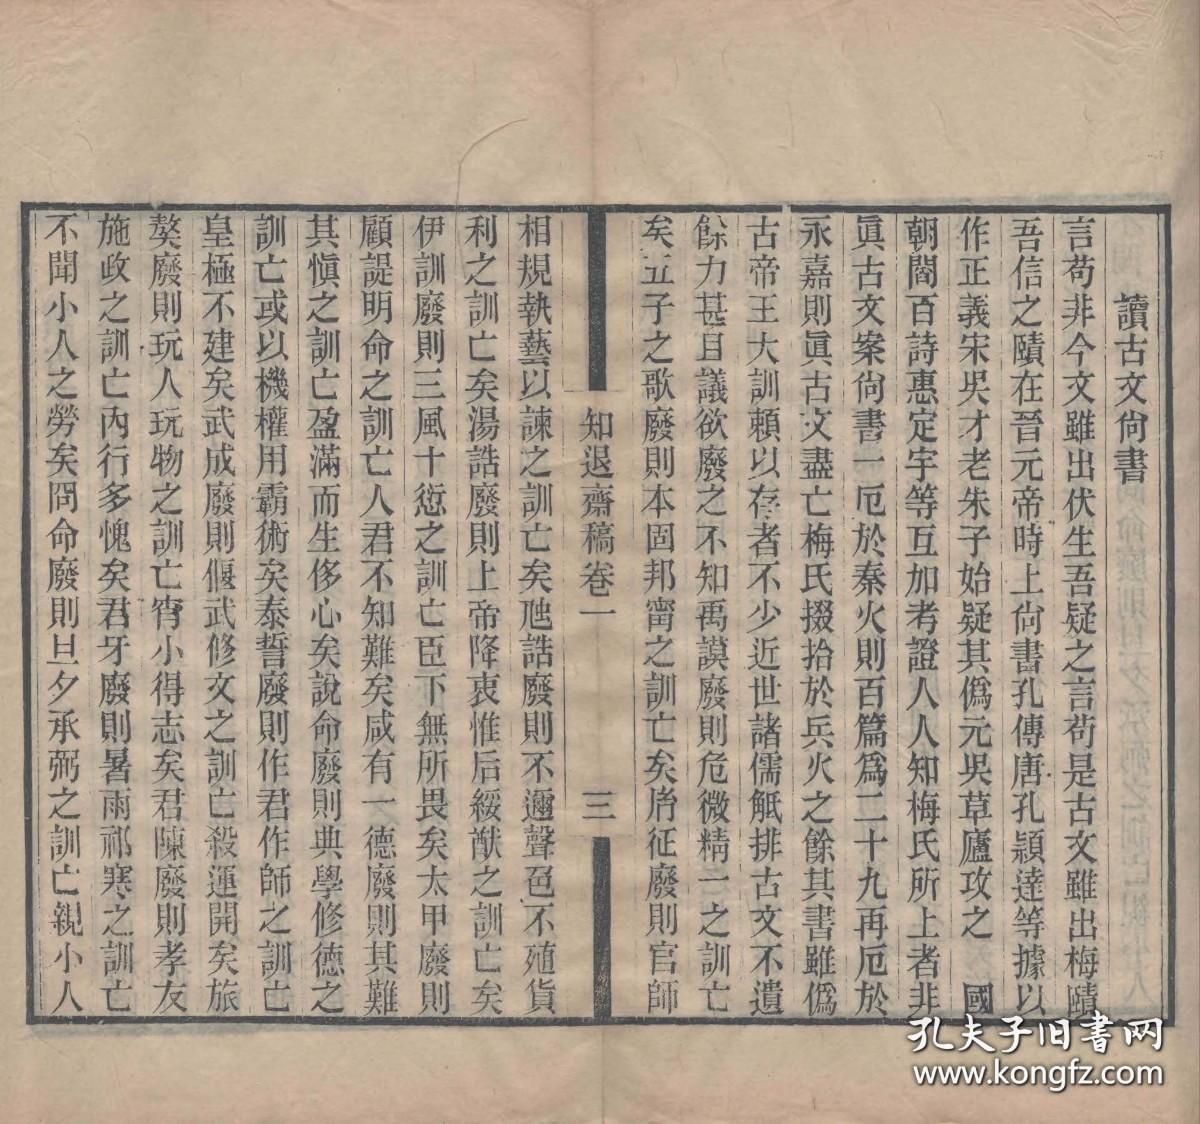 讀古文尚書
言苟非今文雖出伏生吾疑之言苟是古文雖出梅賾
吾信之賾在晉元帝時上尚書孔傳唐孔穎達等據以
作正義宋吳才老朱子始疑其僞元吳草廬攻之 國
朝閻百詩惠定宇等互加考證人人知梅氏所上者非
眞古文案尚書一厄於秦火則百篇爲二十九再厄於
永嘉則眞古文盡亡梅氏掇拾於兵火之餘其書雖僞
古帝王大訓賴以存者不少近世諸儒觝排古文不遺
餘力甚且議欲廢之不知禹謨廢則危微精一之訓亡
矣五子之歌廢則本固邦甯之訓亡矣胤征廢則官師
知退齋稿卷一 三
相規執藝以諫之訓亡矣虺誥廢則不邇聲色不殖貨
利之訓亡矣湯誥廢則上帝降衷惟后綏猷之訓亡矣
伊訓廢則三風十愆之訓亡臣下無所畏矣太甲廢則
顧諟明命之訓亡人君不知難矣咸有一德廢則其難
其愼之訓亡盈滿而生侈心矣說命廢則典學修德之
訓亡或以機權用霸術矣泰誓廢則作君作師之訓亡
皇極不建矣武成廢則偃武修文之訓亡殺運開矣旅
獒廢則玩人玩物之訓亡宵小得志矣君陳廢則孝友
施政之訓亡內行多愧矣君牙廢則暑雨祁寒之訓亡
不聞小人之勞矣冏命廢則旦夕承弼之訓亡親小人
孔夫子旧书网
www.kongfz.com